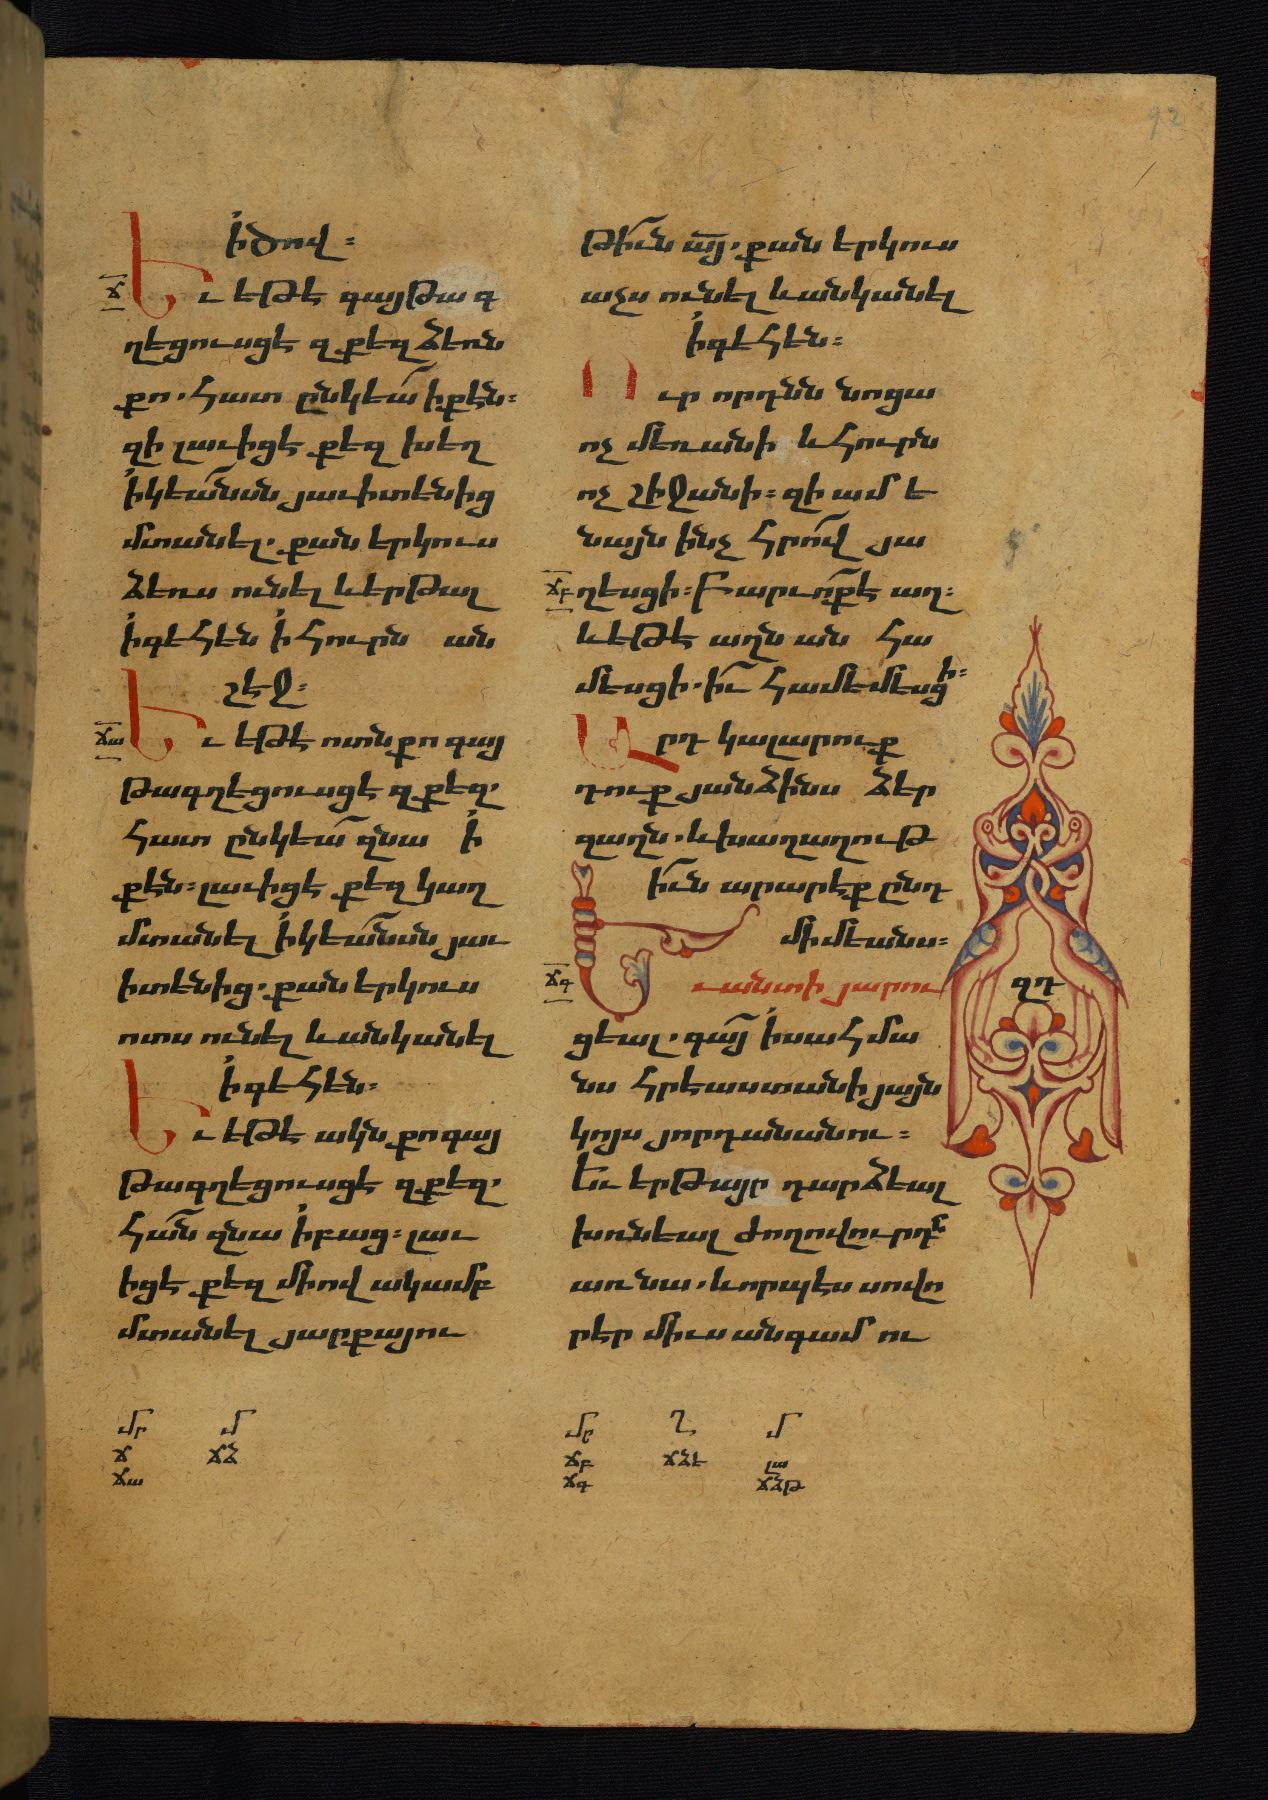 92
ի ծով ։
ճ
Եւ եթէ գայթագ
ղեցուսցէ զքեզ ձեռն
քո . հատ ընկեա՛ ի քէն ։
զի լաւիցէ քեզ խեղ
ի կեանսն յաւիտենից
մտանել . քան երկուս
ձեռս ունել և երթալ
ի գեհեն ի հուրն ան
շէջ ։
ճա
Եւ եթէ ոտն քո գայ
թագղեցուսցէ զքեզ .
հատ ընկեա զնա ի
քէն ։ լաւիցէ քեզ կաղ
մտանել ի կեանսն յաւ
իտենից . քան երկուս
ոտս ունել և անկանել
ի գեհեն ։
Եւ եթէ ակն քո գայ
թագղեցուսցէ զքեզ .
հան զնա ի բաց ։ լաւ
իցէ քեզ միով ակամբ
մտանել յարքայու
թիւն այ . քան երկուս
աչս ունել և անկանել
ի գեհեն ։
Ուր որդնն նոցա
ոչ մեռանի և հուրն
ոչ շիջանի ։ զի ամե
նայն ինչ հրով յա
ճբ
ղեսցի ։ Բարւոք է աղ ։
և եթէ աղն ան հա
մեսցի . իւ համեմեսցի ։
Արդ կալարուք
դուք յանձինս ձեր
զաղն . և խաղաղութ
իւն արարէք ընդ
միմեանս ։
ճգ
Եւ անտի յարու
ցեալ . գայ ի սահմա
նս հրեաստանի յայն
կոյս յորդանանու ։
Եւ երթայր դարձեալ
խռնեալ ժողովուրդն
առ նա . և որպէս սովո
րէր միւս անգամ ու
զդ
մր
ճ
ճա
մ
ճձ
մր
ճբ
ճգ
ղ
ճձէ
մ
լա
ճձթ